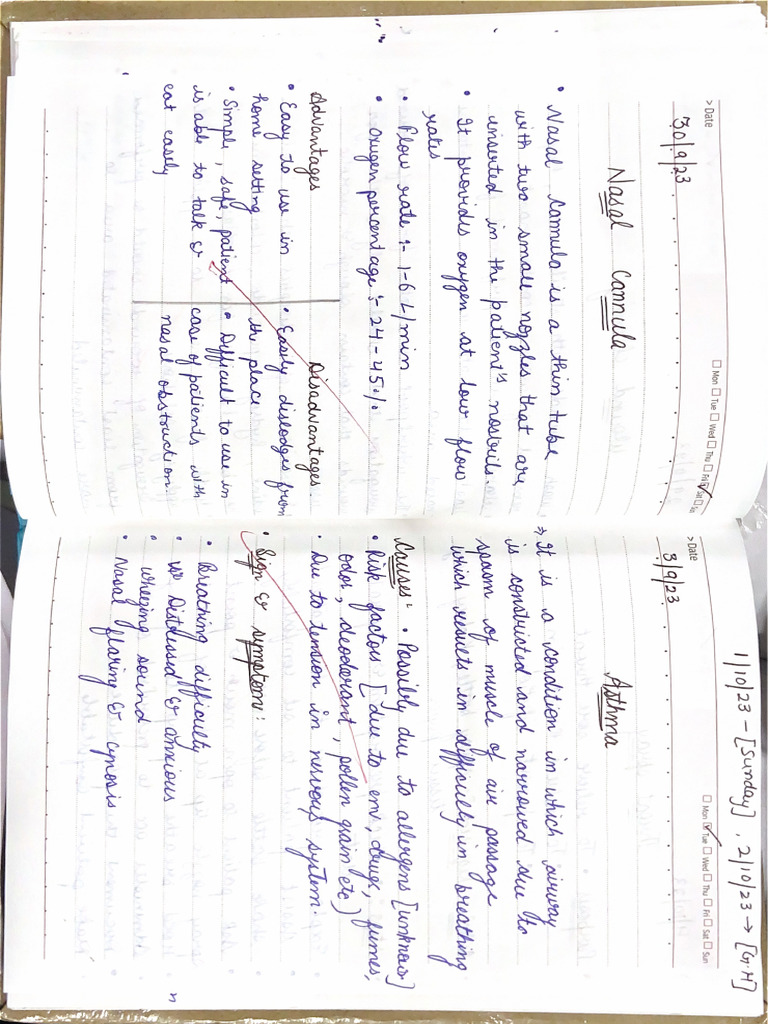 > Date
30/9/23
Mon Tue Wed Thu Fri Sat Sun
Nasal Cannula
• Nasal Cannula is a thin tube
with two small nozzles that are
inserted in the patient's nostrils.
• It provides oxygen at low flow
rates
• Flow rate :- 1-6 L/min
• Oxygen percentage :- 24-45%
Advantages
• Easy to use in
home setting
• Simple, safe, patient
is able to talk &
eat easily
Disadvantages.
• Easily dislodges from
the place
• Difficult to use in
case of patients with
nasal obstruction.
1/10/23 - [Sunday], 2/10/23 → [G.H]
> Date
3/9/23
Mon Tue Wed Thu Fri Sat Sun
Asthma
→ It is a condition in which airway
is constricted and narrowed due to
spasm of muscle of air passage
which results in difficulty in breathing
Causes: • Possibly due to allergens [unknown]
• Risk factors [due to env, drugs, fumes,
odor, deodorant, pollen grain etc)
• Due to tension in nervous system.
• Sign & symptom:
• Breathing difficulty
• Distressed & anxious
• wheezing sound
• Nasal flaring & cynosis